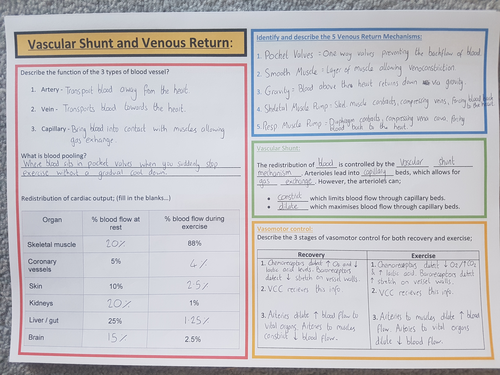 Vascular Shunt and Venous Return:
Describe the function of the 3 types of blood vessel?
1. Artery - Transport blood away from the heart
2. Vein - Transports blood towards the heart.
3. Capillary - Bring blood into contact with muscles allowing
gas exchange.
What is blood pooling?
Where blood sits in pocket valves when you suddenly stop
exercise without a gradual cool down.
Redistribution of cardiac output; (fill in the blanks...)
Organ % blood flow at rest % blood flow during exercise
Skeletal muscle 20% 88%
Coronary vessels 5% 4%
Skin 10% 2.5%
Kidneys 20% 1%
Liver / gut 25% 1.25%
Brain 15% 2.5%
Identify and describe the 5 Venous Return Mechanisms:
1. Pocket Valves: One way valves preventing the backflow of blood.
2. Smooth Muscle: Layer of muscle allowing venoconstriction
3. Gravity: Blood above the heart returns via gravity.
4. Skeletal Muscle Pump: Skel muscle contracts, compressing veins, forcing blood back
to the heart.
5. Resp Muscle Pump: Diaphragm contracts, compressing vena cava, forcing
blood back to the heart.
Vascular Shunt:
The redistribution of blood is controlled by the vascular shunt
mechanism. Arterioles lead into capillary beds, which allows for
gas exchange. However, the arterioles can;
• constrict which limits blood flow through capillary beds.
• dilate which maximises blood flow through capillary beds.
Vasomotor control:
Describe the 3 stages of vasomotor control for both recovery and exercise;
Recovery
1. Chemoreceptors detect ↑ O2 and ↓
lactic acid levels. Baroreceptors
detect ↓ stretch on vessel walls.
2. VCC recieves this info.
3. Arteries dilate ↑ blood flow to
vital organs. Arteries to muscles
constrict ↓ blood flow.
Exercise
1. Chemoreceptors detect ↓ O2/↑CO2
& ↑ lactic acid. Baroreceptors detect
↑ stretch on vessel walls.
2. VCC recieves this info.
3. Arteries to muscles dilate ↑ blood
flow. Arteries to vital organs
dilate ↓ blood flow.